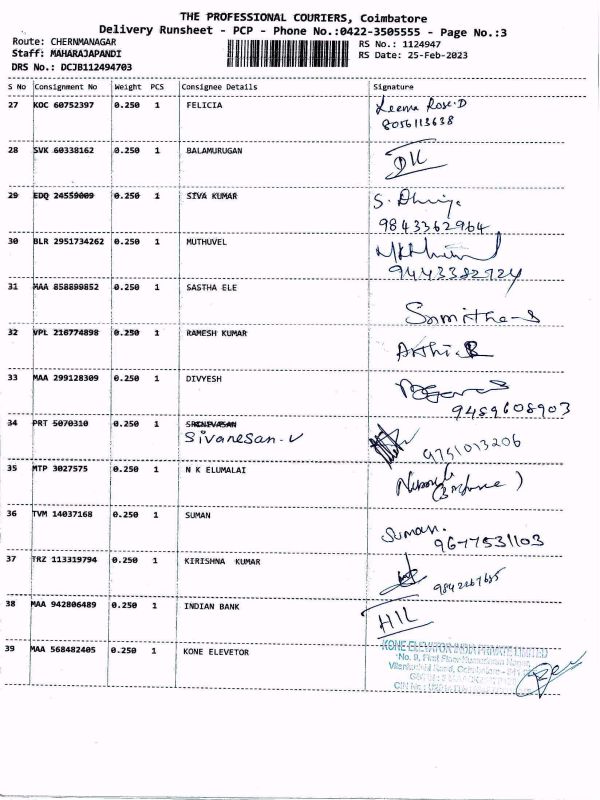 THE PROFESSIONAL COURIERS, Coimbatore
Delivery Runsheet - PCP - Phone No.:0422-3505555 - Page No.:3
Route: CHERNMANAGAR RS No.: 1124947
Staff: MAHARAJAPANDI RS Date: 25-Feb-2023
DRS No.: DCJB112494703
S No Consignment No Weight PCS Consignee Details Signature
27 KOC 60752397 0.250 1 FELICIA Leema Rose.D
8056113638
28 SVK 60338162 0.250 1 BALAMURUGAN DK
29 EDQ 24559009 0.250 1 SIVA KUMAR S.
9843362964
30 BLR 2951734262 0.250 1 MUTHUVEL
9443382724
31 MAA 858899852 0.250 1 SASTHA ELE
Smritha-S
32 VPL 216774898 0.250 1 RAMESH KUMAR
Arthi.R
33 MAA 299128309 0.250 1 DIVYESH
9489608903
34 PRT 5070310 0.250 1 SRINIVASAN
Sivanesan-V 9751013206
35 MTP 3027575 0.250 1 N K ELUMALAI
36 TVM 14037168 0.250 1 SUMAN
Suman.
9677531103
37 TRZ 113319794 0.250 1 KIRISHNA KUMAR
9842267685
38 MAA 942806489 0.250 1 INDIAN BANK
HIL
39 MAA 568482405 0.250 1 KONE ELEVETOR KONE ELEVATOR INDIA PRIVATE LIMITED
No. 9, First Floor